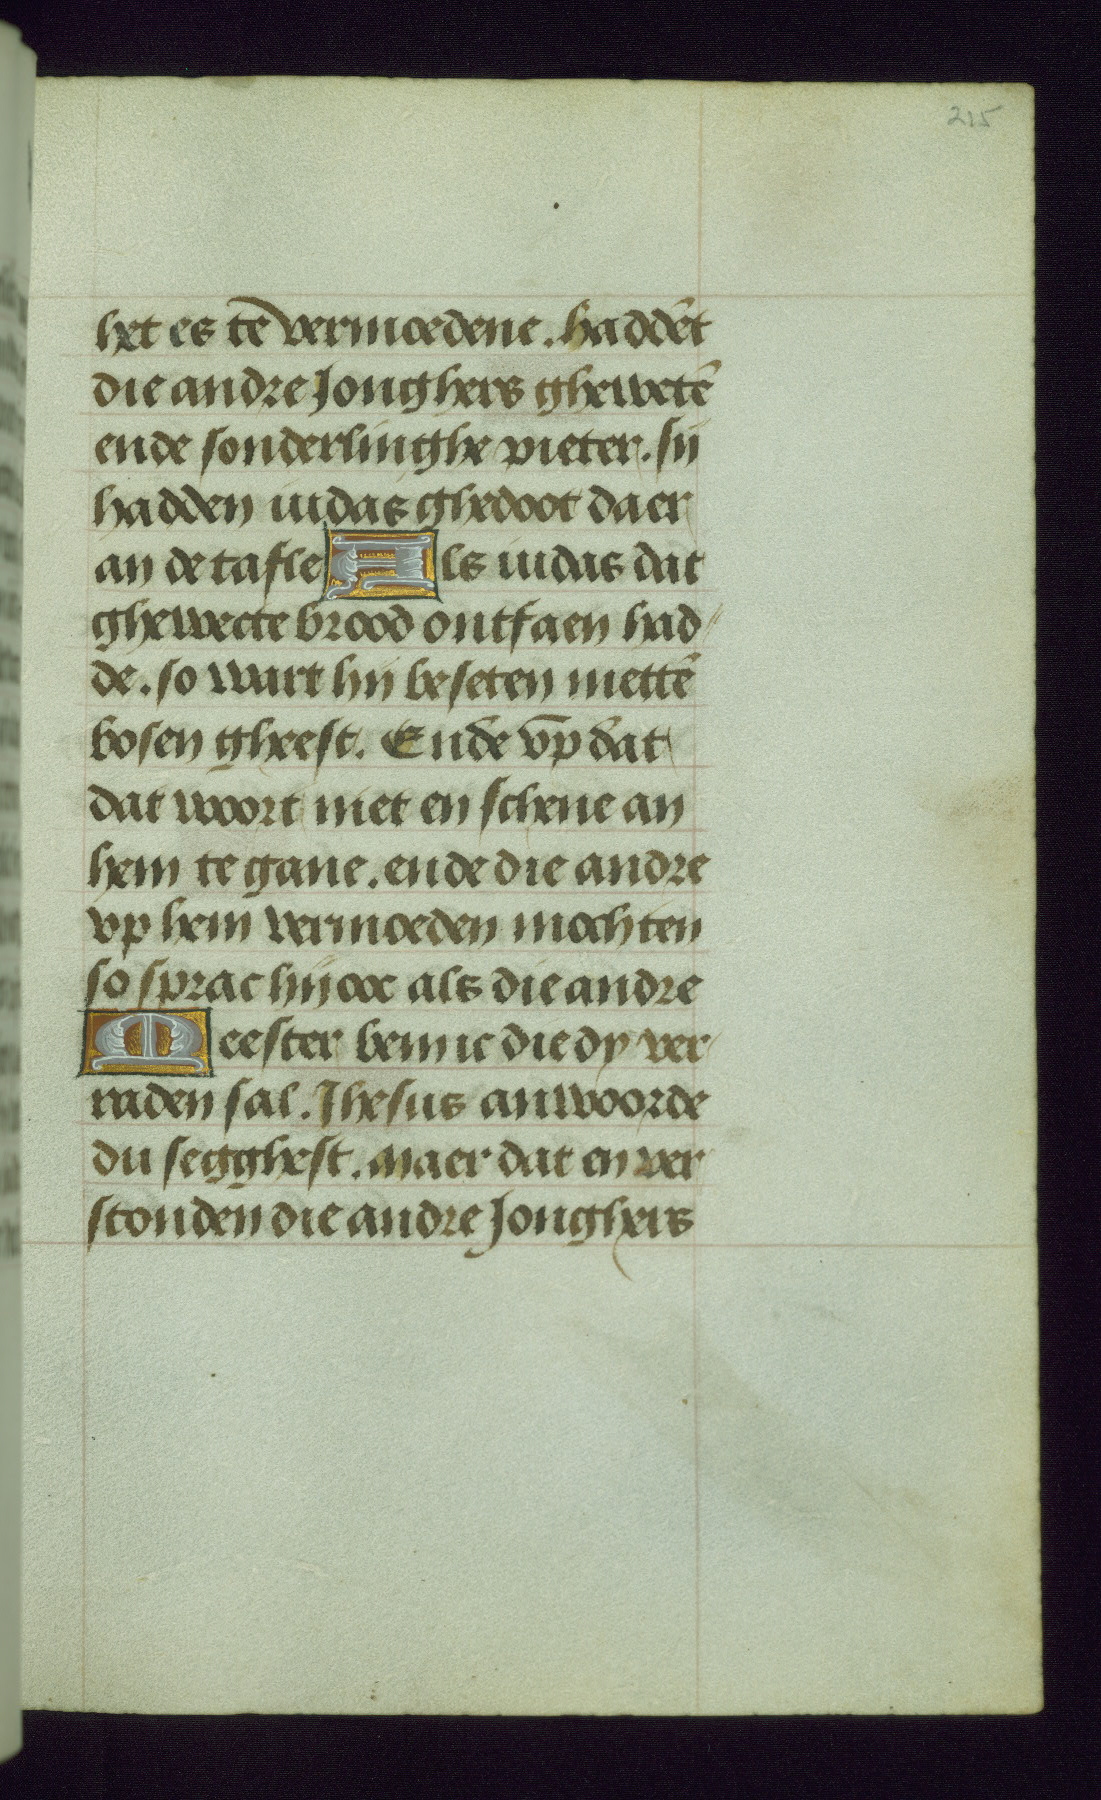 215
het es tē vermoedene. haddēt
die andre Jonghers ghewetē
ende sonderlinghe pieter. sij
hadden iudas ghedoot daer
an de tafle Als iudas dat
ghewecte brood ontfaen had
de. so wart hij beseten mettē
bosen gheest. Ende vp dat
dat woort niet en schene an
hem te gane. ende die andre
vp hem vermoeden mochten
so sprac hij ooc als die andre
Meester bem ic die dy ver
raden sal. Jhesus anwoorde
du segghest. maer dat en ver
stonden die andre Jonghers